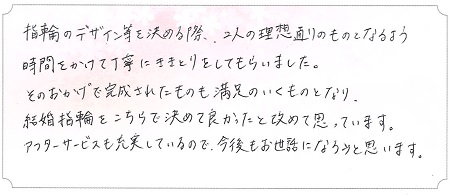 指輪のデザイン等を決める際、二人の理想通りのものとなるよう
時間をかけて丁寧にききとりをしてもらいました。
そのおかげで完成されたものも満足のいくものとなり、
結婚指輪をこちらで決めて良かったと改めて思っています。
アフターサービスも充実しているので、今後もお世話になろうと思います。